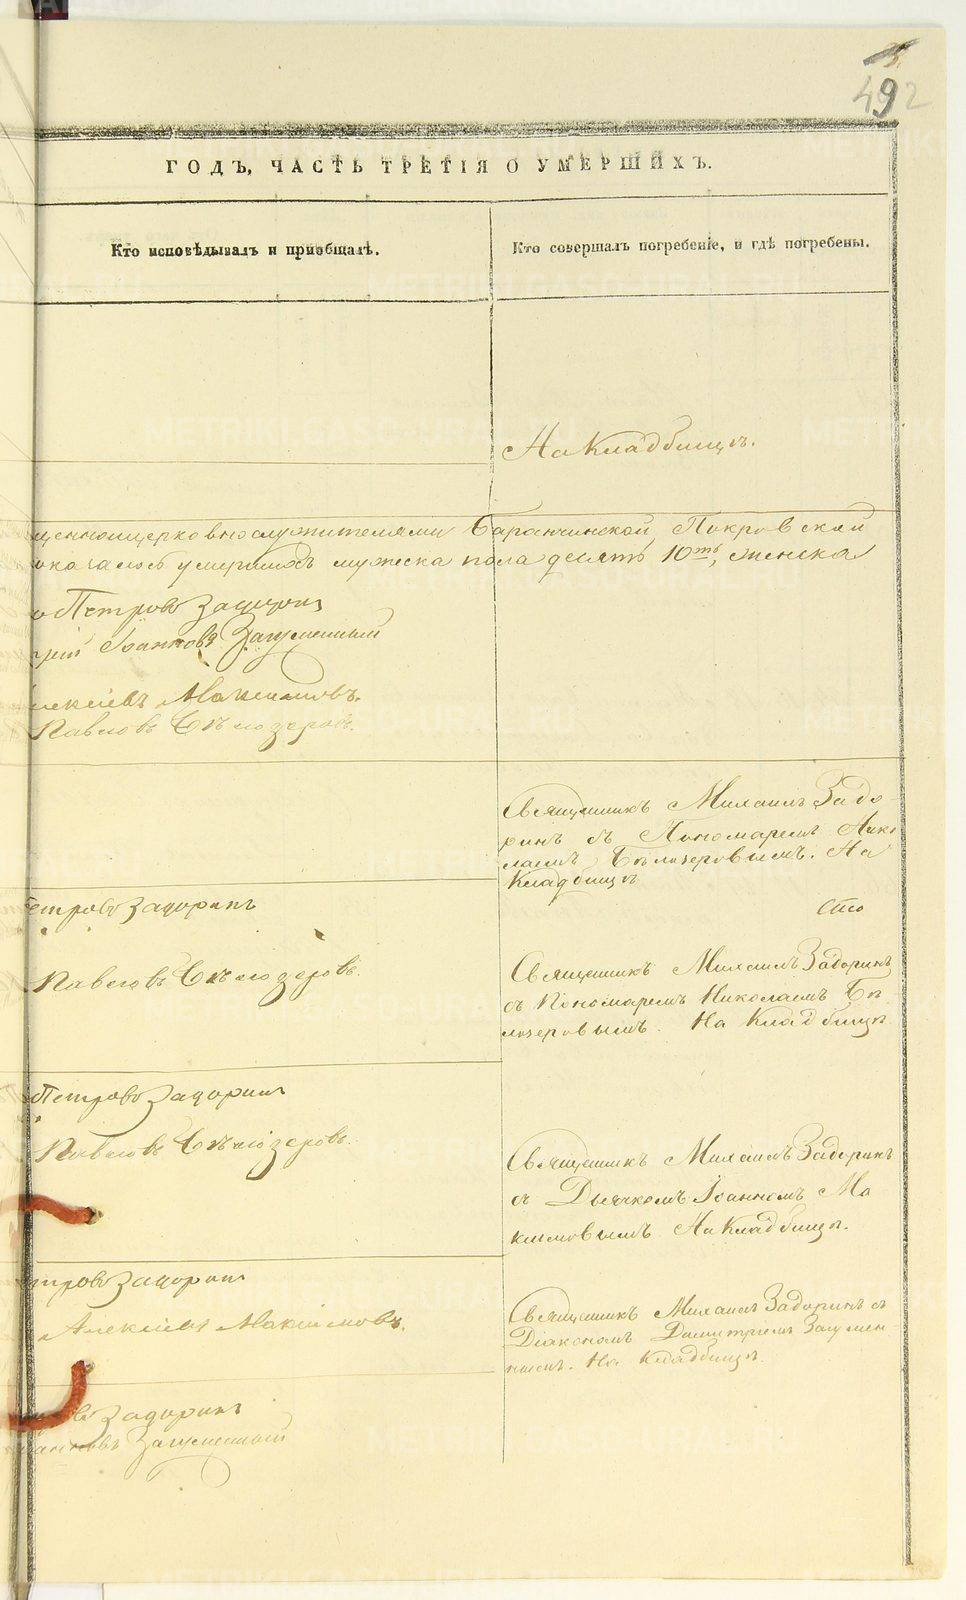 492
ГОДЪ, ЧАСТЬ ТРЕТІЯ О УМЕРШИХЪ.
Кто исповѣдывалъ и пріобщалъ.
Кто совершалъ погребеніе, и гдѣ погребены.
На Кладбищѣ.
щенноцерковнослужителями Баранчинской Покровской
оказалось умершихъ мужеска пола десять 10ть, женска
Петровъ Задоринъ
Іоанновъ Загуменный
Алексіевъ Максимовъ.
Павловъ Бѣлозеровъ.
Священникъ Михаилъ Задо-
ринъ съ Пономаремъ Нико
лаемъ Бѣлозеровымъ. На
Кладбищѣ
Петровъ Задоринъ
Павловъ Бѣлозеровъ.
Священникъ Михаилъ Задоринъ
съ Пономаремъ Николаемъ Бѣ
лозеровымъ. На Кладбищѣ
Петровъ Задоринъ
Павловъ Бѣлозеровъ.
Священникъ Михаилъ Задоринъ
съ Дьячкомъ Іоанномъ Ма
ксимовымъ На Кладбищѣ.
тровъ Задоринъ
Алексіевъ Максимовъ.
Священникъ Михаилъ Задоринъ съ
Діакономъ Димитріемъ Загумен
нымъ. На Кладбищѣ.
Задоринъ
Загуменный
METRIKI.GASO-URAL.RU